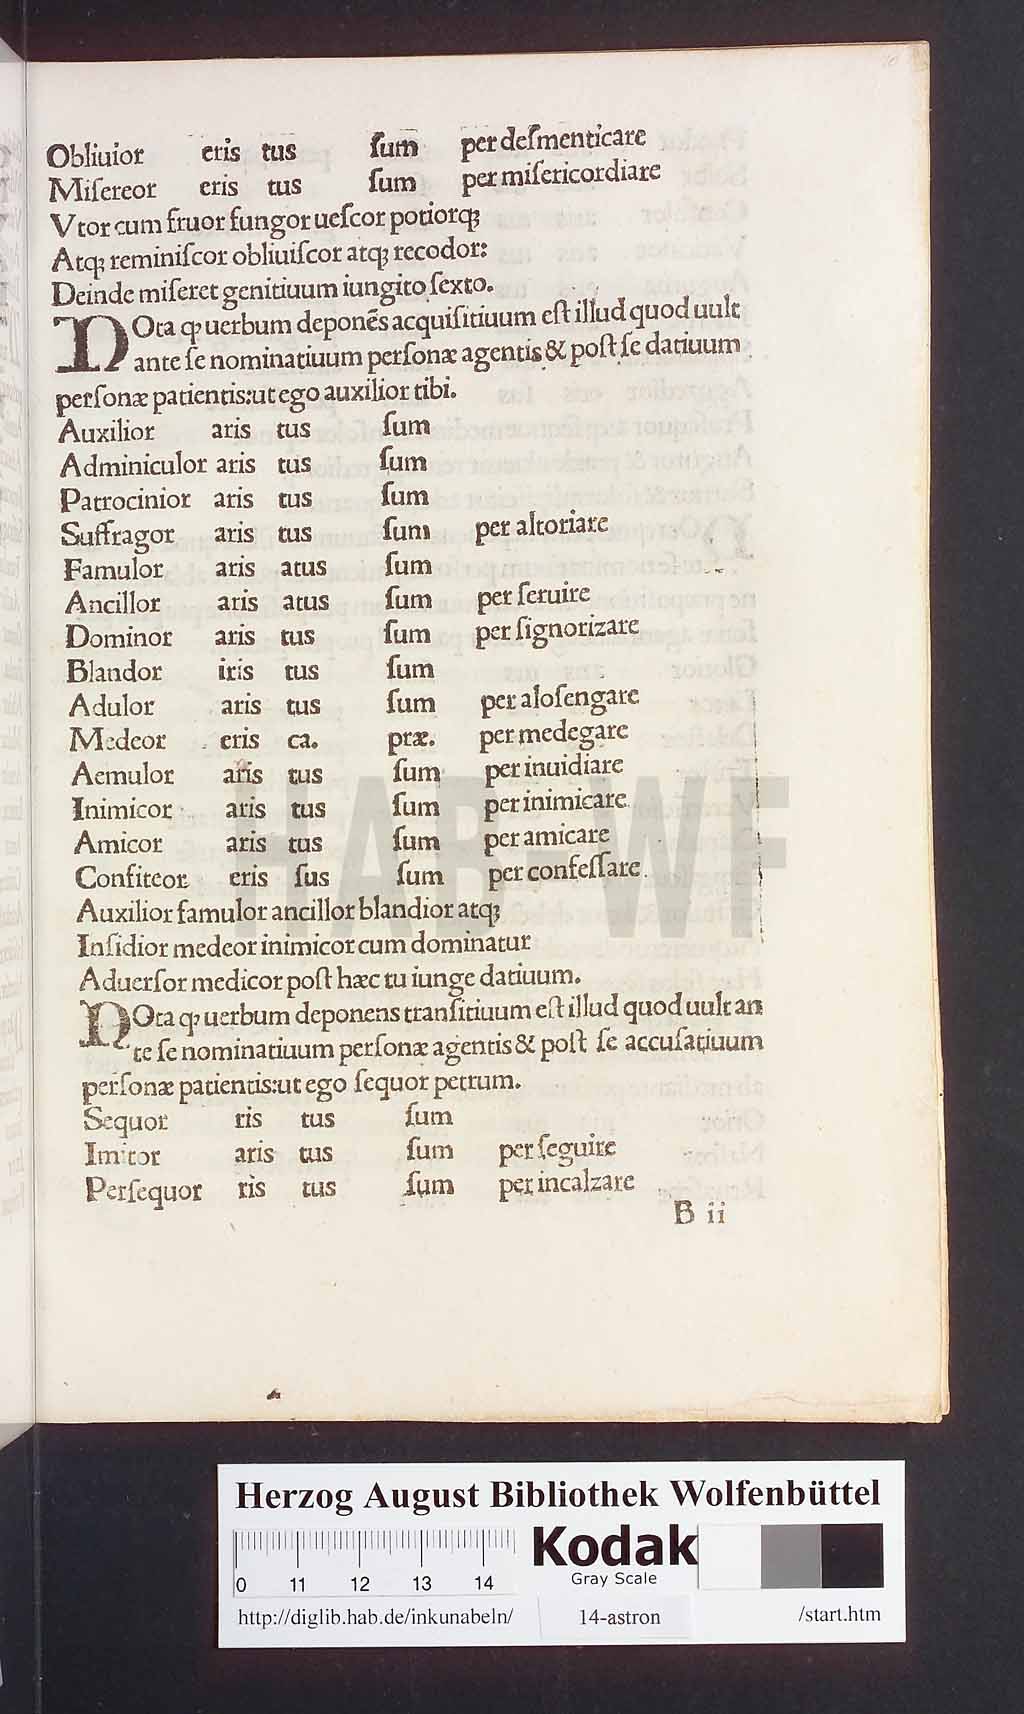 Obliuior eris tus ſum per deſmenticare
Miſereor eris tus ſum per miſericordiare
Vtor cum fruor fungor ueſcor potiorq;
Atq; reminiſcor obliuiſcor atq; recodor:
Deinde miſeret genitiuum iungito ſexto.
NOta ꝙ uerbum deponēs acquiſitiuum eſt illud quod uult
ante ſe nominatiuum perſonæ agentis & poſt ſe datiuum
perſonæ patientis:ut ego auxilior tibi.
Auxilior aris tus ſum
Adminiculor aris tus ſum
Patrocinior aris tus ſum
Suffragor aris tus ſum per altoriare
Famulor aris atus ſum
Ancillor aris atus ſum per ſeruire
Dominor aris tus ſum per ſignorizare
Blandor iris tus ſum
Adulor aris tus ſum per aloſengare
Medeor eris ca. præ. per medegare
Aemulor aris tus ſum per inuidiare
Inimicor aris tus ſum per inimicare
Amicor aris tus ſum per amicare
Confiteor eris ſus ſum per confeſſare.
Auxilior famulor ancillor blandior atq;
Inſidior medeor inimicor cum dominatur
Aduerſor medicor poſt hæc tu iunge datiuum.
NOta ꝙ uerbum deponens tranſitiuum eſt illud quod uult an
te ſe nominatiuum perſonæ agentis & poſt ſe accuſatiuum
perſonæ patientis:ut ego ſequor petrum.
Sequor ris tus ſum
Imitor aris tus ſum per ſeguire
Perſequor ris tus ſum per incalzare
B ii
HAB-WF
Herzog August Bibliothek Wolfenbüttel
Kodak
Gray Scale
0 11 12 13 14
http://diglib.hab.de/inkunabeln/ 14-astron /start.htm